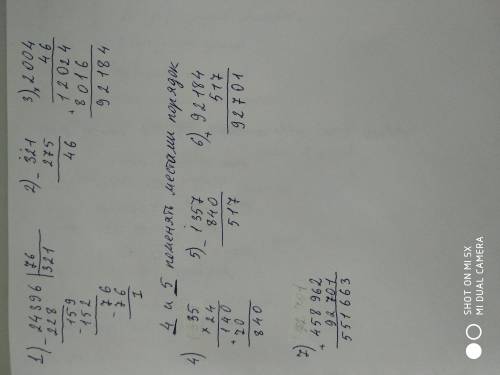 1) - 24396 | 76
228 | 321
159
- 152
76
- 76
1
2) - 321
275
46
3) 2004
46
12024
+ 8016
92184
4 и 5 поменять местами порядок
4) 35
× 24
140
+ 70
840
5) - 1357
840
517
6) + 92184
517
92701
7) + 458962
92701
551663
SHOT ON MI 5X
MI DUAL CAMERA